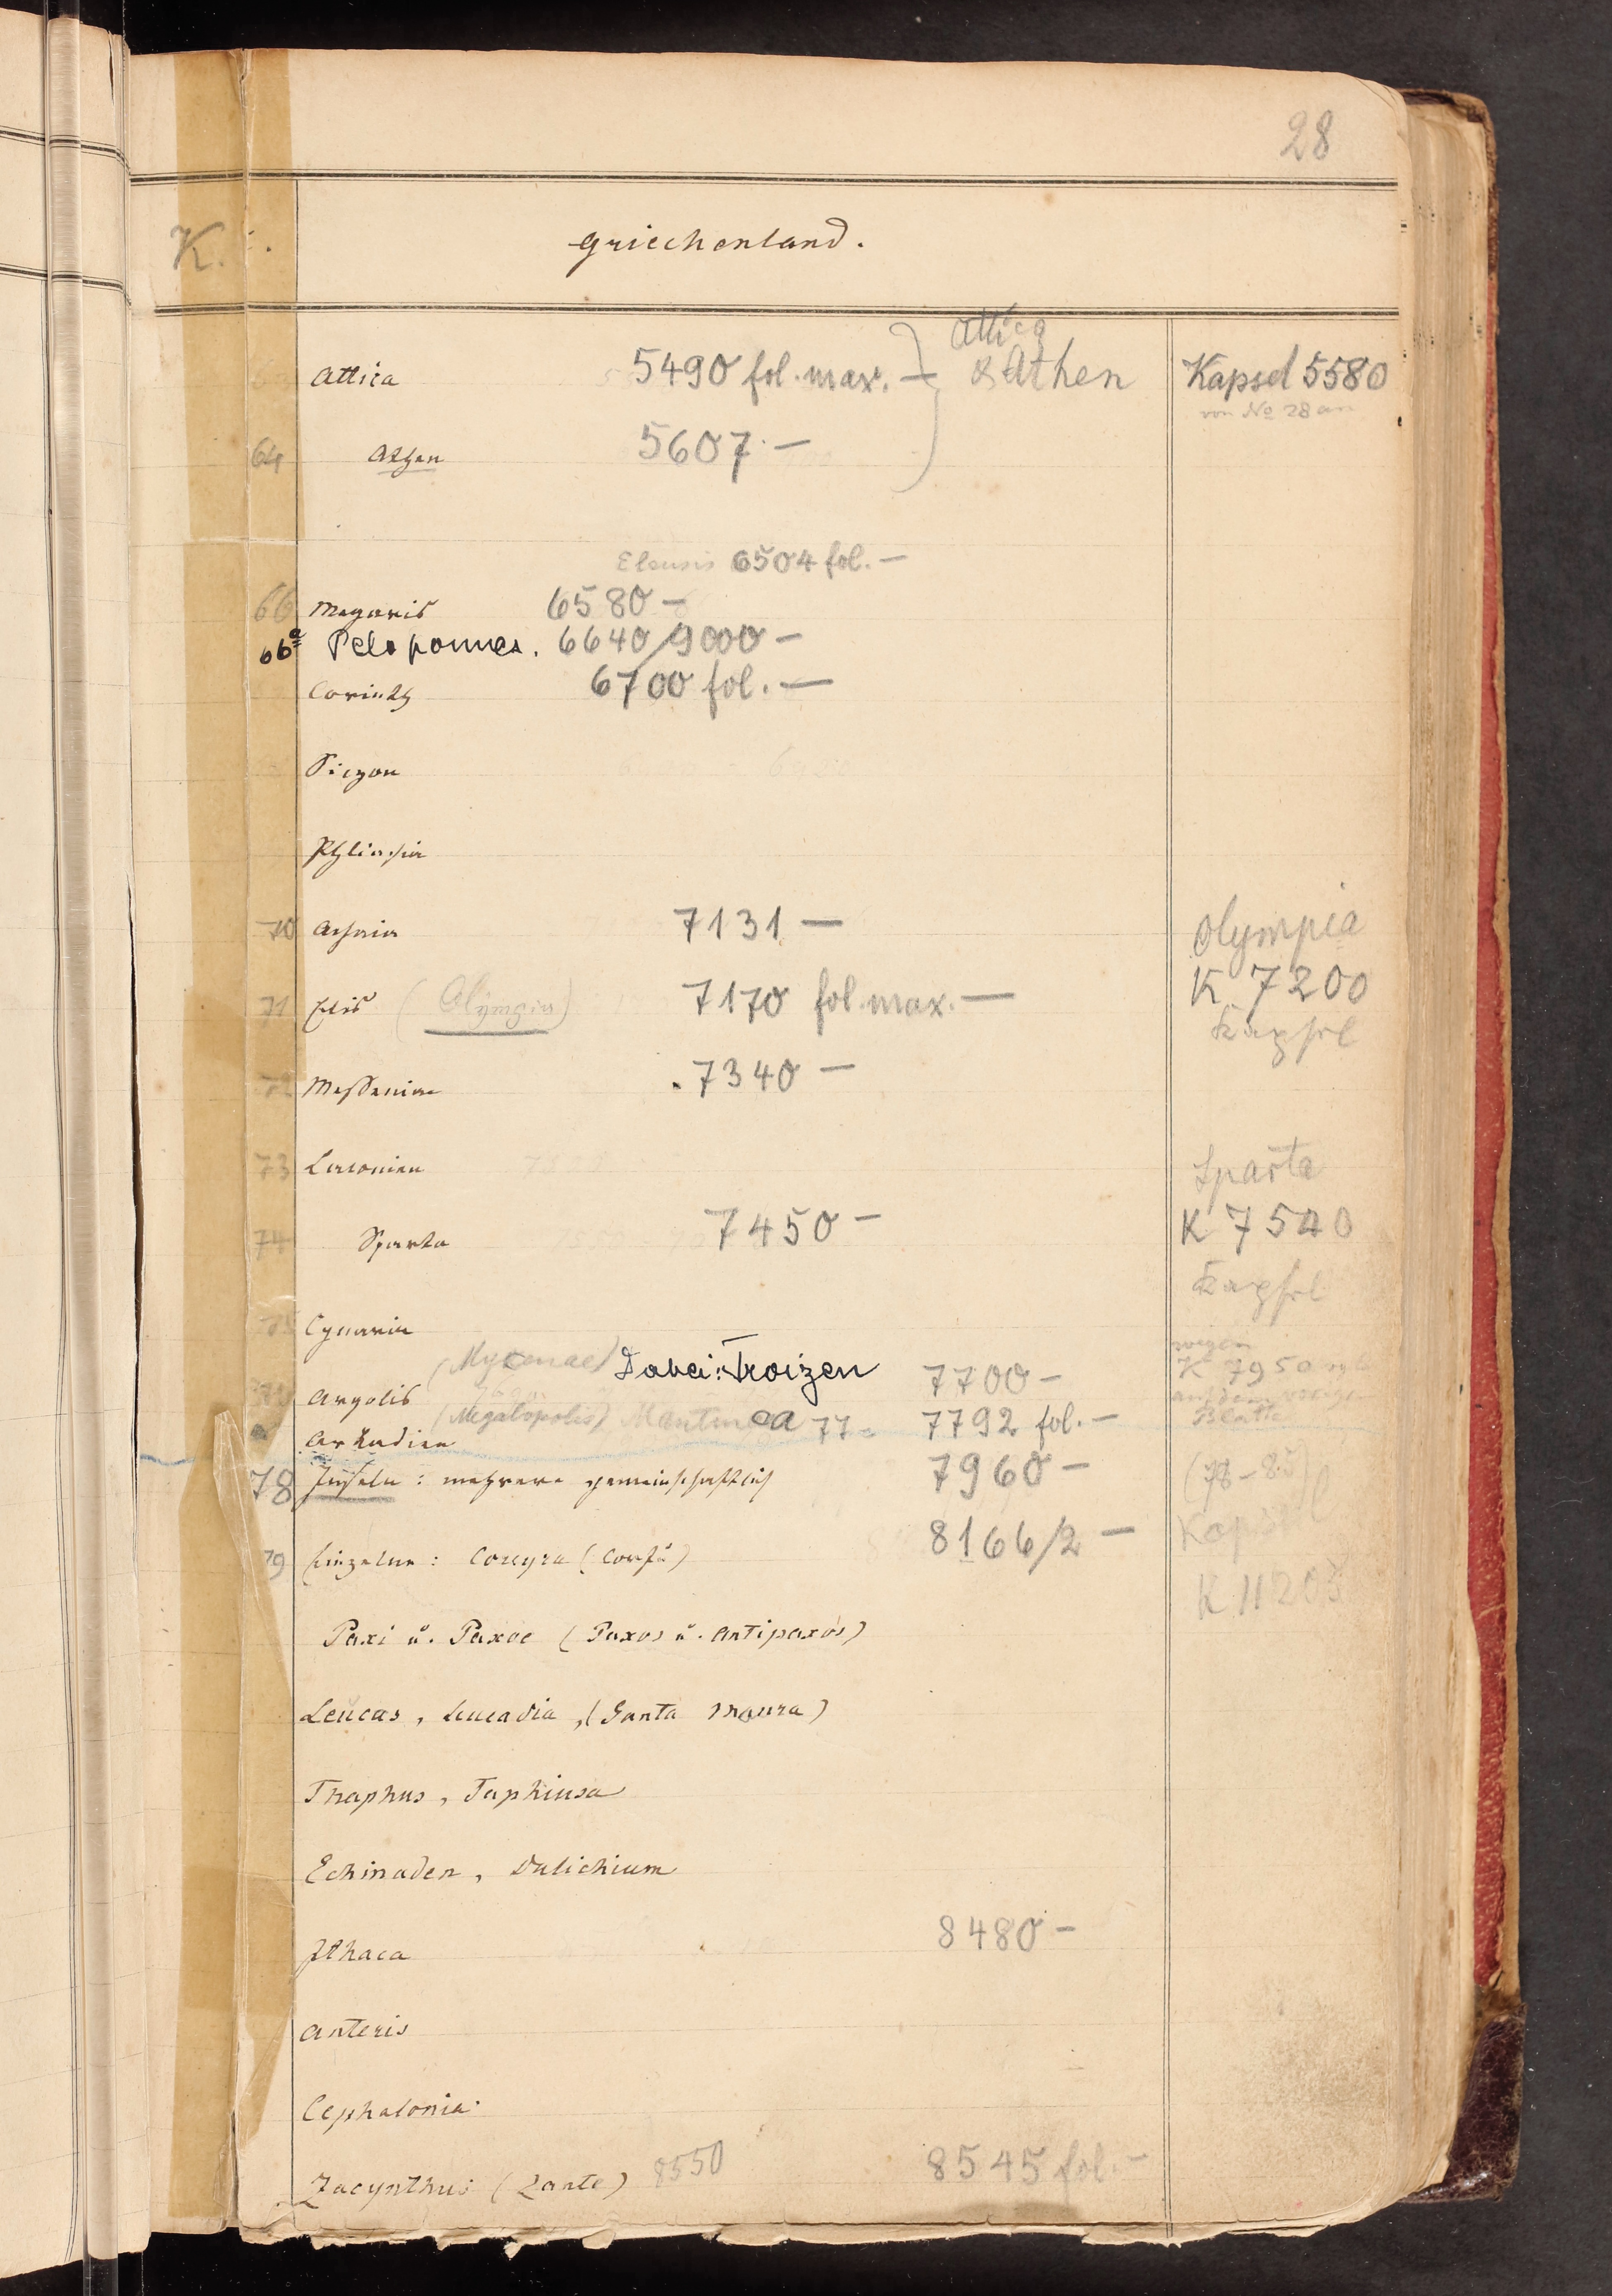 28
K.
Griechenland.
Attica 5490 fol. max. — Attica
& Athen Kapsel 5580
von No 28 an
64 Athen 5607 —
Eleusis 6504 fol. —
66 Megaris 6580 —
66a Peloponnes. 6640/9000 —
Corinth 6700 fol. —
Sicyon
Phliasia
70 Achaia 7131 —
Olympia
71 Elis (Olympia) 7170 fol. max. — K. 7200
Kapsel
72 Messenien 7340 —
73 Laconien
Sparta
74 Sparta 7450 — K 7540
Kapsel
75 Cynuria
(Mycenae) Dabei: Troizen
Argolis 7700 — K 7950
(Megalopolis) Mantinea 77 7792 fol. —
Arkadien
78 Inseln: mehrere gemeinschaftlich 7960 — (78-85)
79 Einzelne: Corcyra (Corfu) 8166/2 — Kapsel
K 11205
Paxi u. Paxoe (Paxos u. Antipaxos)
Leucas, Leucadia, (Santa Maura)
Thaphus, Taphiusa
Echinaden, Dulichium
Ithaca 8480 —
Anteris
Cephalonia
Zacynthus (Zante) 8550 8545 fol. —